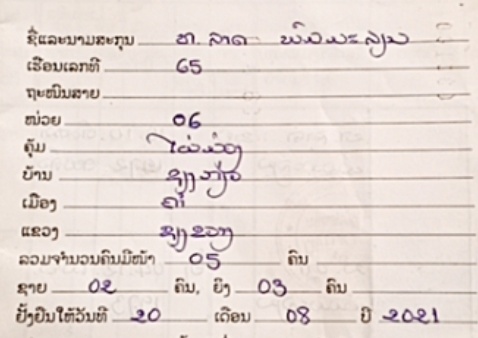 ຊື່ແລະນາມສະກຸນ ທ. ລາດ
ເຮືອນເລກທີ 65
ຖະໜົນສາຍ
ໜ່ວຍ 06
ຄຸ້ມ
ບ້ານ
ເມືອງ ຄຳ
ແຂວງ ຊຽງຂວາງ
ລວມຈຳນວນຄົນມີໜ້າ 05 ຄົນ
ຊາຍ 02 ຄົນ, ຍິງ 03 ຄົນ
ຢັ້ງຢືນໃຫ້ວັນທີ 20 ເດືອນ 08 ປີ 2021